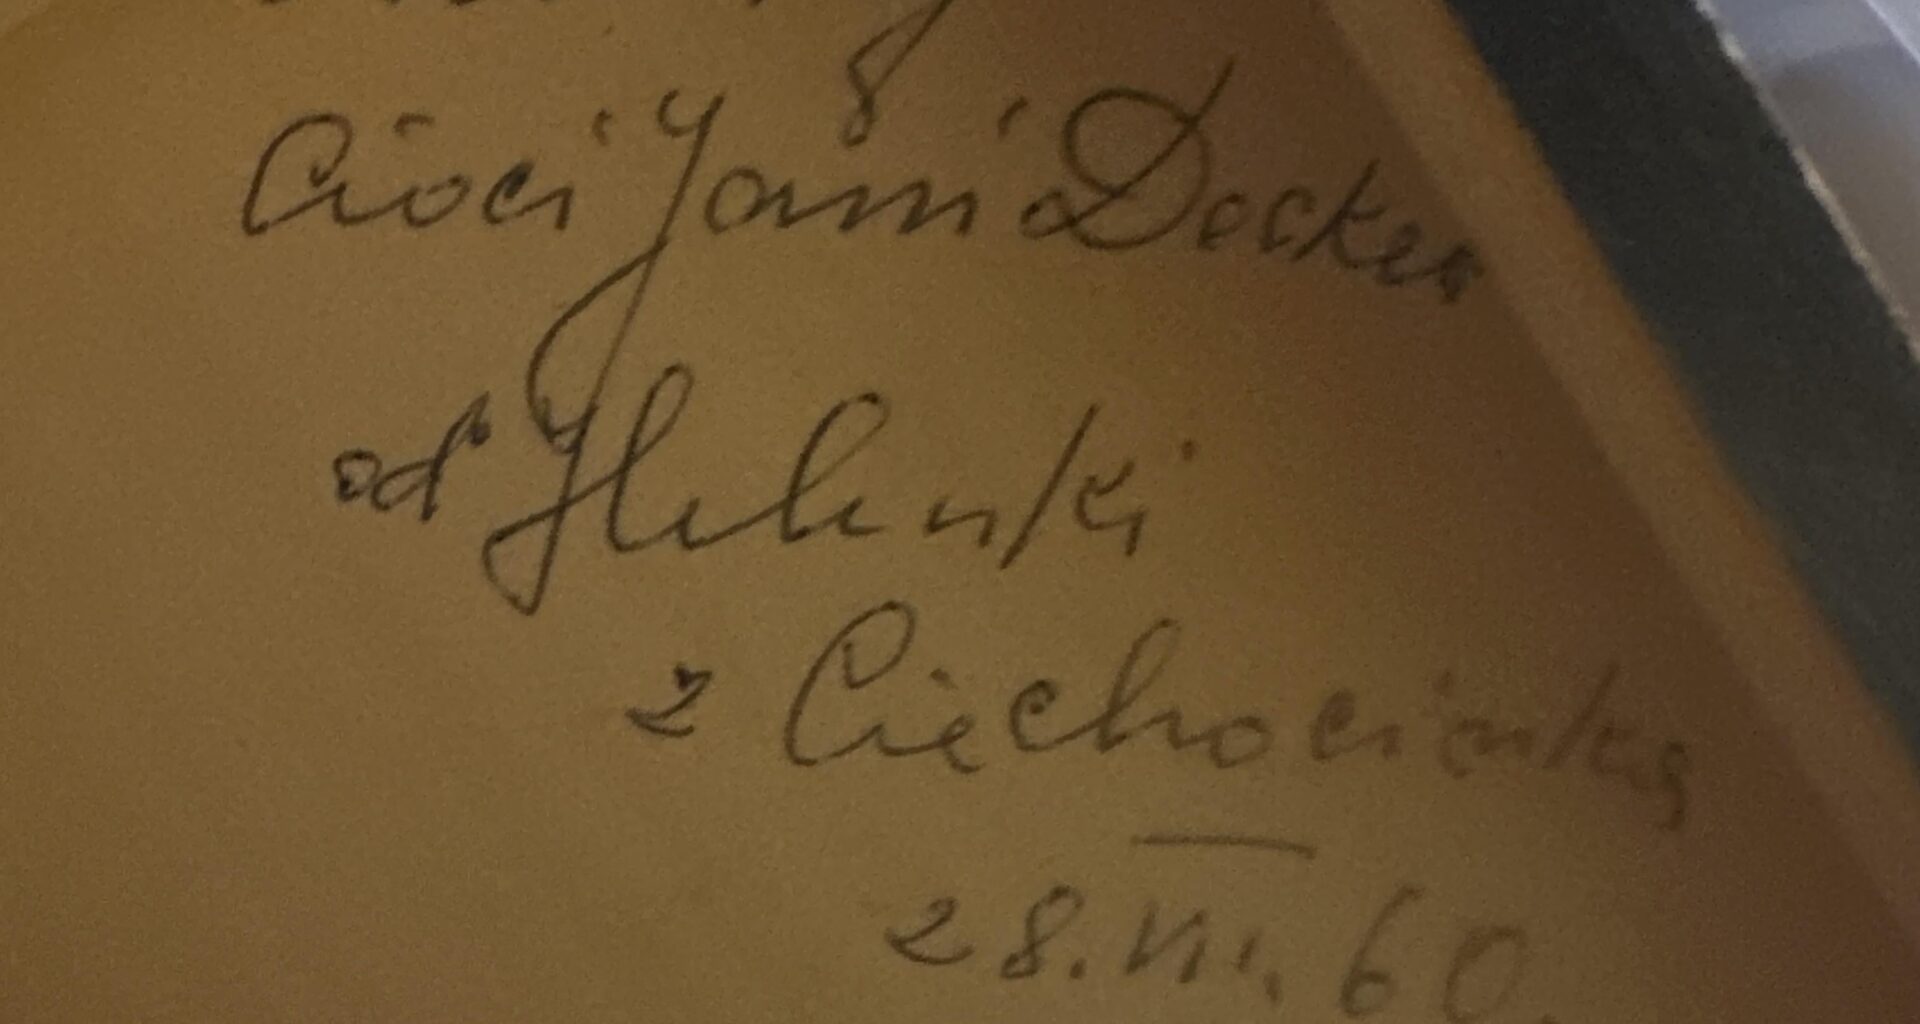 Cioci Jani Decker
od Helenki
z Ciechocinka
28.VII.60.